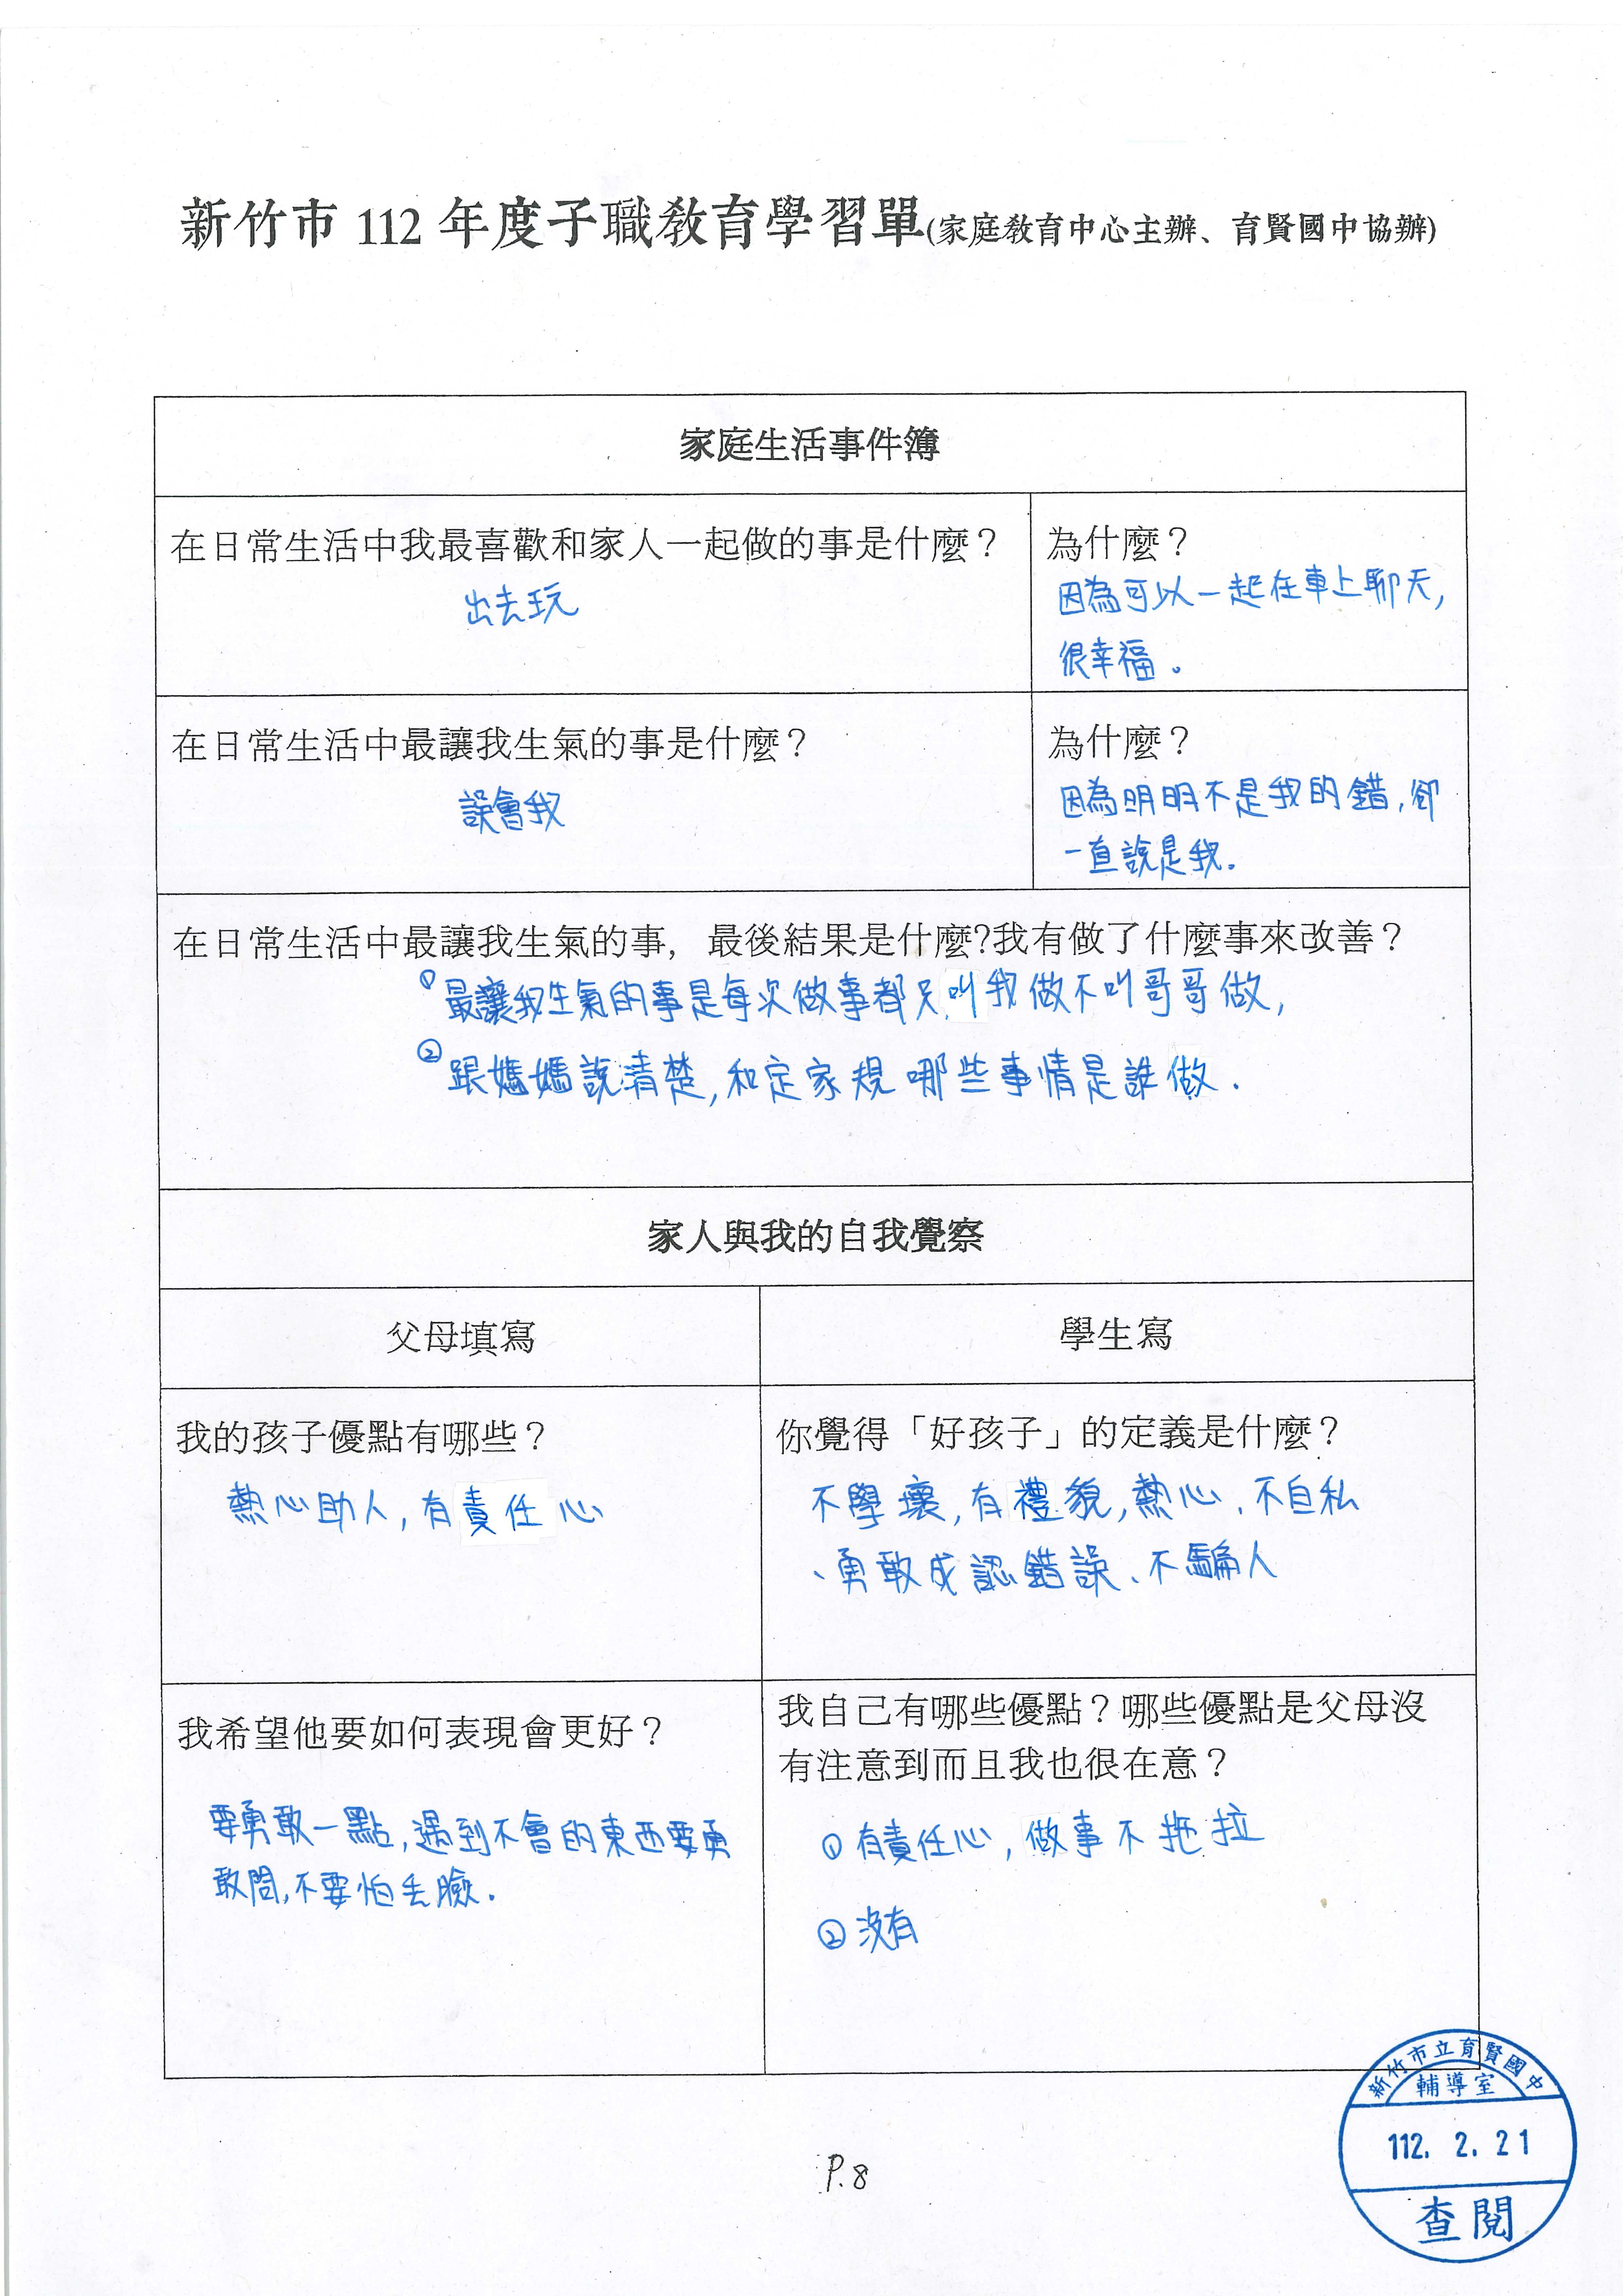 新竹市 112 年度子職教育學習單(家庭教育中心主辦、育賢國中協辦)
家庭生活事件簿
在日常生活中我最喜歡和家人一起做的事是什麼？
出去玩
為什麼？
因為可以一起在車上聊天，
很幸福。
在日常生活中最讓我生氣的事是什麼？
誤會我
為什麼？
因為明明不是我的錯，卻
一直說是我.
在日常生活中最讓我生氣的事，最後結果是什麼?我有做了什麼事來改善？
①最讓我生氣的事是每次做事都只叫我做不叫哥哥做，
②跟媽媽說清楚，和定家規哪些事情是誰做.
家人與我的自我覺察
父母填寫
學生寫
我的孩子優點有哪些？
熱心助人，有責任心
你覺得「好孩子」的定義是什麼？
不學壞，有禮貌，熱心、不自私
、勇敢成認錯誤、不騙人
我希望他要如何表現會更好？
要勇敢一點，遇到不會的東西要勇
敢問，不要怕丟臉.
我自己有哪些優點？哪些優點是父母沒
有注意到而且我也很在意？
①有責任心，做事不拖拉
②沒有
新竹市立育賢國中
輔導室
112. 2. 21
查閱
P.8